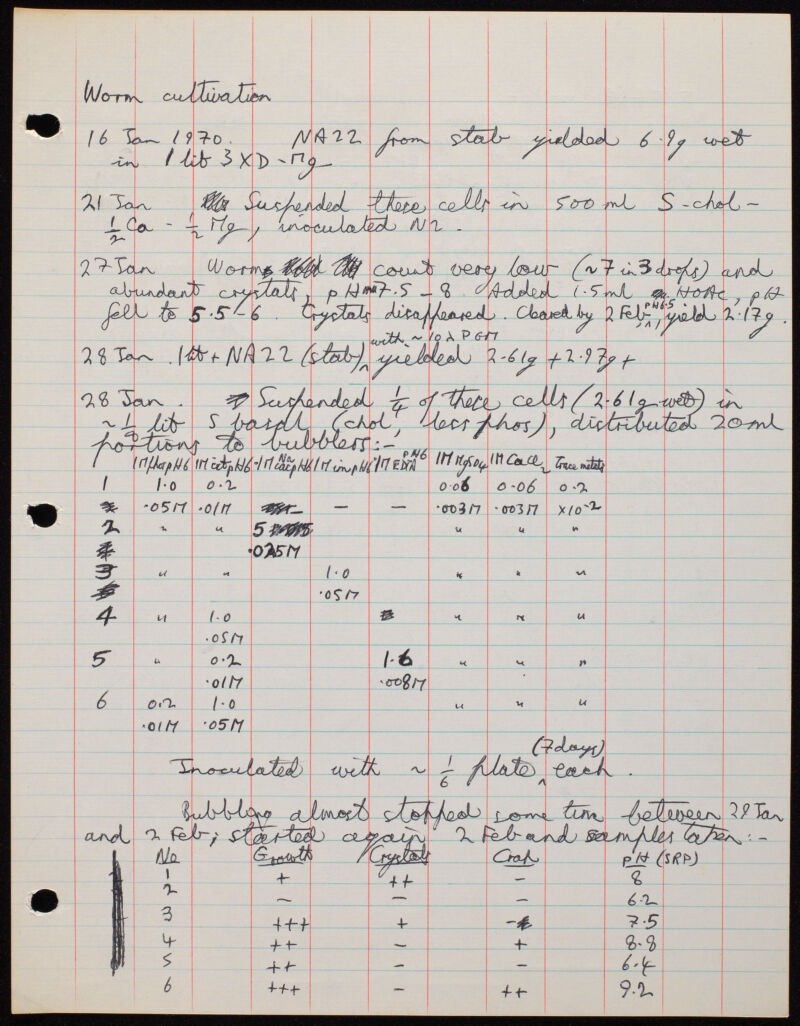 Worm cultivation
16 Jan 1970. NA22 from stab yielded 6.9g wet
in 1 lit 3XD-Mg
21 Jan Suspended these cells in 500 ml S-chol-
½ Ca - ½ Mg, inoculated N2.
27 Jan Worm count very low (~7 in 3 drops) and
abundant crystals, pH 7.5-8. Added 1.5ml HOAc, pH
fell to 5.5-6. Crystals disappeared. Cleared by 2 Feb, pH 6.5, yield 2.17g.
with ~10λ PGM
28 Jan. 1 lit + NA22 (stab) yielded 2.61g + 2.97g +
28 Jan. Suspended ¼ of these cells (2.61g wet) in
~⅛ lit S basal (chol, less phos), distributed 20ml
portions to bubblers:-
1M phos pH6 1M cit pH6 1M Na cac pH6 1M im pH6 1M EDTA pH6 1M MgSO4 1M CaCl2 Trace metals
1 1.0 0.2 0.06 0.06 0.2
.05M .01M — — .003M .003M x10-2
2 " " 5 " " "
.025M
3 " " 1.0 " " "
.05M
4 " 1.0 " " "
.05M
5 " 0.2 1.6 " " "
.01M .008M
6 0.2 1.0 " " "
.01M .05M
(7 days)
Inoculated with ~ ⅙ plate each.
Bubbling almost stopped some time between 29 Jan
and 2 Feb; started again 2 Feb and samples taken:-
No Growth Crystals Crap pH (SRP)
1 + ++ — 8
2 — — — 6.2
3 +++ + — 7.5
4 ++ — + 8.8
5 ++ — — 6.4
6 +++ — ++ 9.2